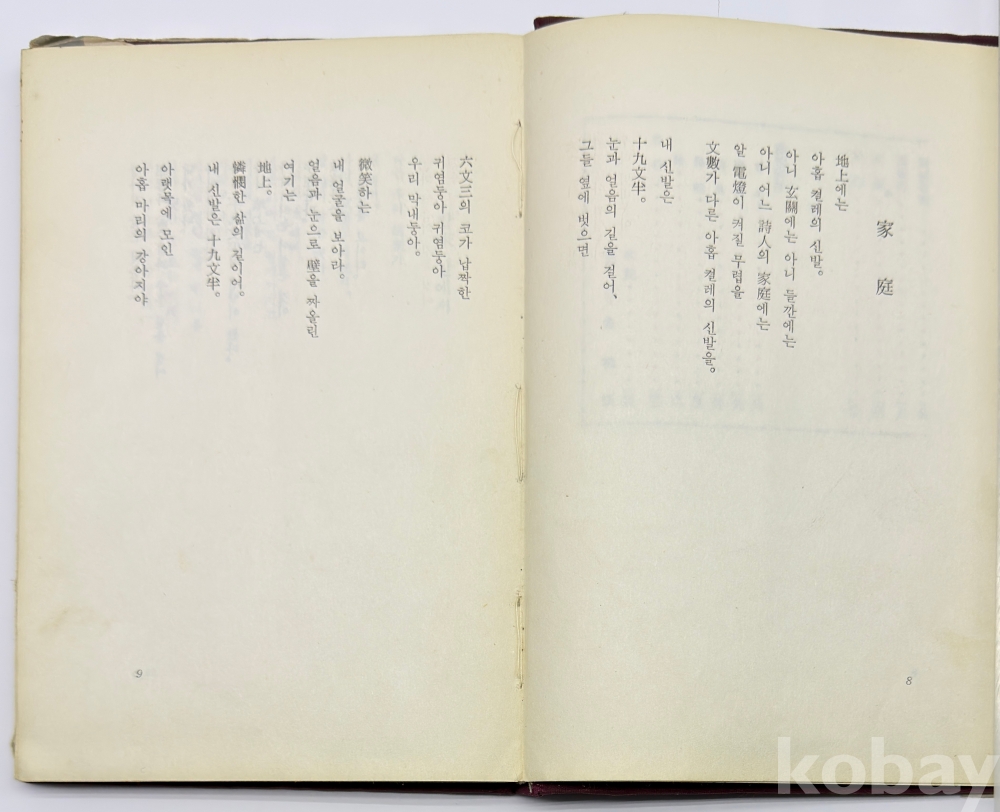 家庭
地上에는
아홉 켤레의 신발。
아니 玄關에는 아니 들깐에는
아니 어느 詩人의 家庭에는
알 電燈이 켜질 무렵을
文數가 다른 아홉 켤레의 신발을。
내 신발은
十九文半。
눈과 얼음의 길을 걸어、
그들 옆에 벗으면
8
六文三의 코가 납짝한
귀염둥아 귀염둥아
우리 막내둥아。
微笑하는
내 얼굴을 보아라。
얼음과 눈으로 壁을 짜올린
여기는
地上。
憐憫한 삶의 길이어。
내 신발은 十九文半。
아랫목에 모인
아홉 마리의 강아지야
9
kobay